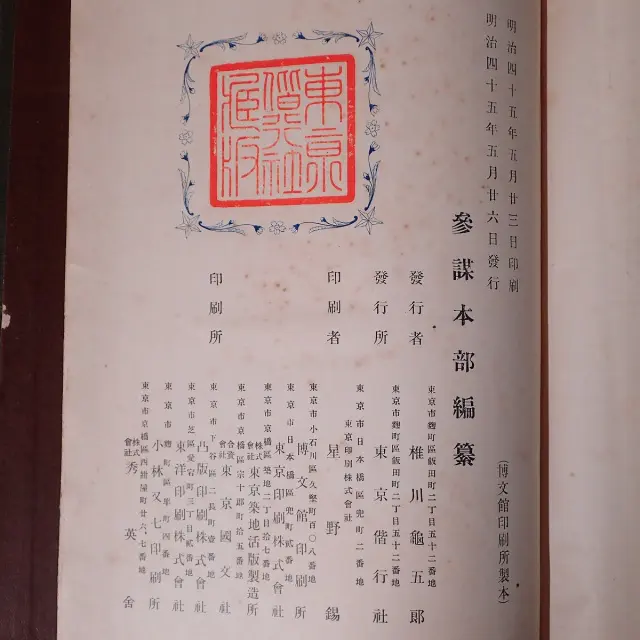 明治四十五年五月廿三日印刷
明治四十五年五月廿六日發行
參謀本部編纂
(博文館印刷所製本)
東京市麴町區飯田町二丁目五十二番地
發行者 椎川龜五郎
東京市麴町區飯田町二丁目五十二番地
發行所 東京偕行社
東京市日本橋區兜町二番地
東京印刷株式會社
印刷者 星野錫
東京市小石川區久堅町百〇八番地
博文館印刷所
東京市日本橋區兜町貳番地
東京印刷株式會社
東京市京橋區築地二丁目拾七番地
株式會社 東京築地活版製造所
東京市京橋區宗十郎町拾五番地
合資會社 東京國文社
東京市下谷區二長町壹番地
印刷所 凸版印刷株式會社
東京市芝區愛宕町三丁目貳番地
東洋印刷株式會社
東京市麴町區平町四番地
小林又七印刷所
東京市京橋區西紺屋町廿六、七番地
株式會社 秀英舍
東京
偕行社
底版